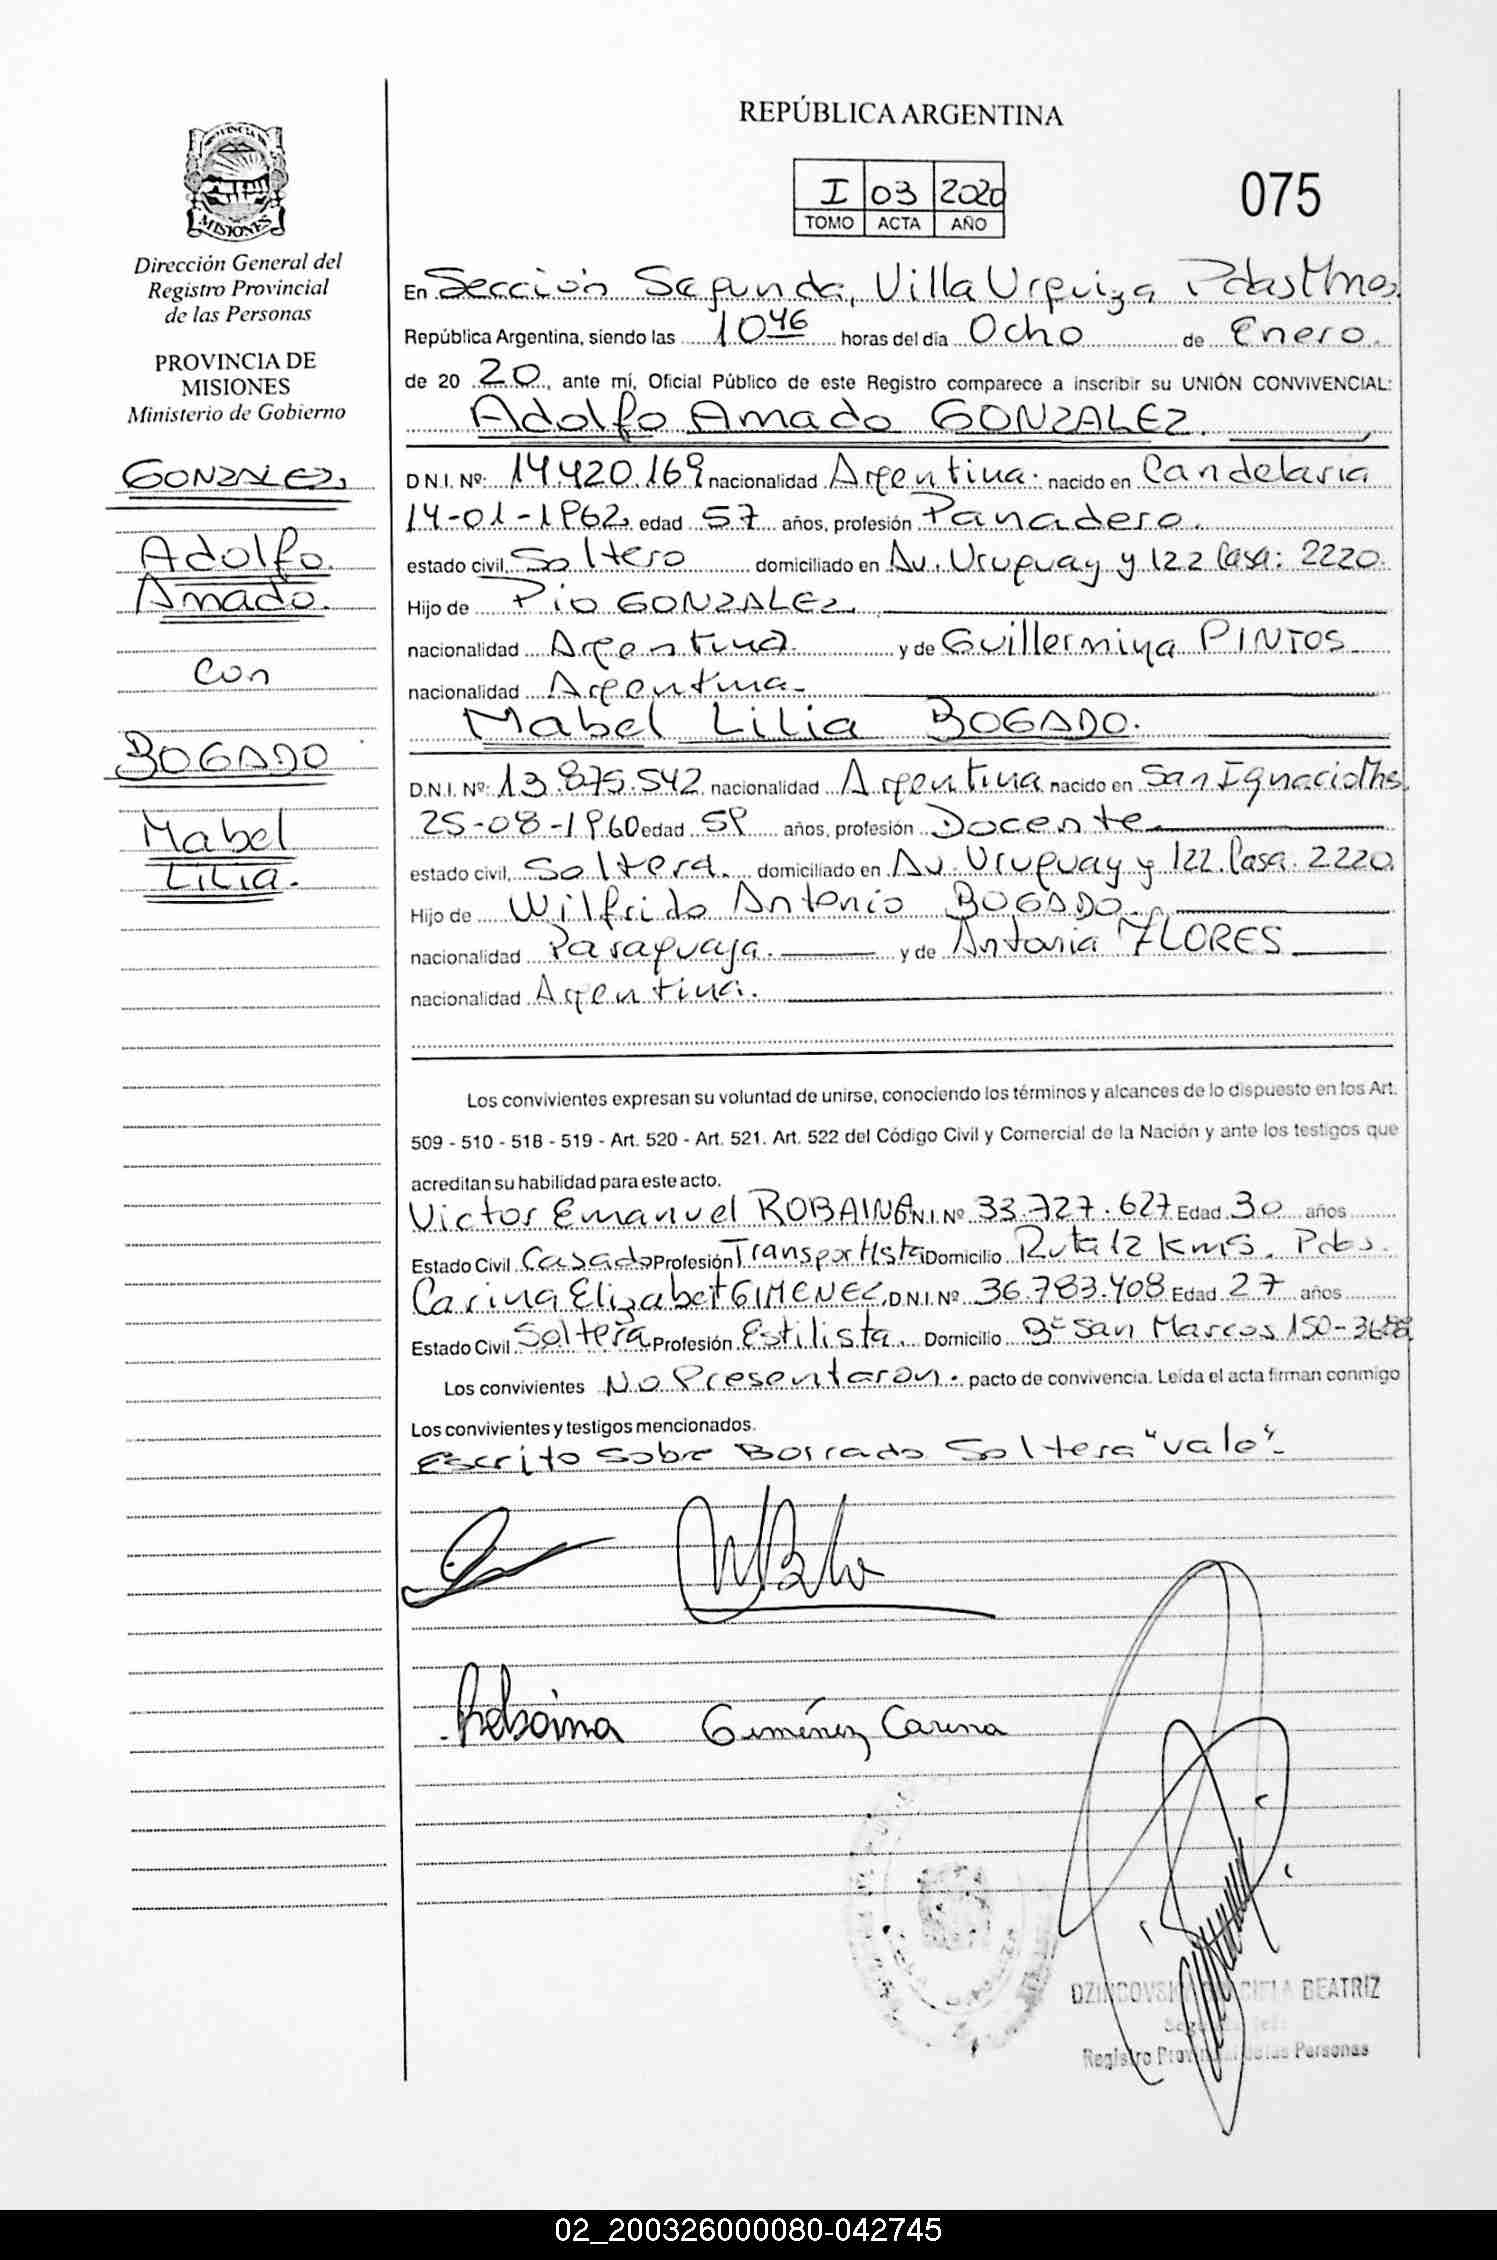 REPÚBLICA ARGENTINA
PROVINCIA DE
MISIONES
I 03 2020
TOMO ACTA AÑO
075
Dirección General del
Registro Provincial
de las Personas
PROVINCIA DE
MISIONES
Ministerio de Gobierno
GONZALEZ,
Adolfo
Amado.
Con
BOGADO
Mabel
Lilia.
En Sección Segunda, Villa Urquiza Pdas Mnes.
República Argentina, siendo las 10 46 horas del día Ocho de Enero.
de 20 20, ante mí, Oficial Público de este Registro comparece a inscribir su UNIÓN CONVIVENCIAL:
Adolfo Amado GONZALEZ.
D.N.I. Nº: 14.420.169 nacionalidad Argentina. nacido en Candelaria
14-01-1962, edad 57 años, profesión Panadero.
estado civil, Soltero domiciliado en Av. Uruguay y 122 Casa: 2220.
Hijo de Pio GONZALEZ,
nacionalidad Argentina. y de Guillermina PINTOS
nacionalidad Argentina.
Mabel Lilia BOGADO.
D.N.I. Nº: 13.875.542, nacionalidad Argentina, nacido en San Ignacio Mns.
25-08-1960 edad 59 años, profesión Docente
estado civil, Soltera. domiciliado en Av. Uruguay y 122. Casa. 2220.
Hijo de Wilfrido Antonio BOGADO.
nacionalidad Paraguaya. y de Antonia FLORES
nacionalidad Argentina.
Los convivientes expresan su voluntad de unirse, conociendo los términos y alcances de lo dispuesto en los Art.
509 - 510 - 518 - 519 - Art. 520 - Art. 521. Art. 522 del Código Civil y Comercial de la Nación y ante los testigos que
acreditan su habilidad para este acto.
Victor Emanuel ROBAINA D.N.I. Nº 33.727.627 Edad 30 años
Estado Civil Casado Profesión Transportista Domicilio Ruta 12 Kms. Pdas.
Carina Elizabet GIMENEZ, D.N.I. Nº 36.783.408 Edad 27 años
Estado Civil Soltera Profesión Estilista. Domicilio Bº San Marcos 150-3688
Los convivientes No Presentaron. pacto de convivencia. Leída el acta firman conmigo
Los convivientes y testigos mencionados.
Escrito Sobre Borrado Soltera "vale".
Robaina Giménez Carina
BEATRIZ
Registro Personas
02_200326000080-042745